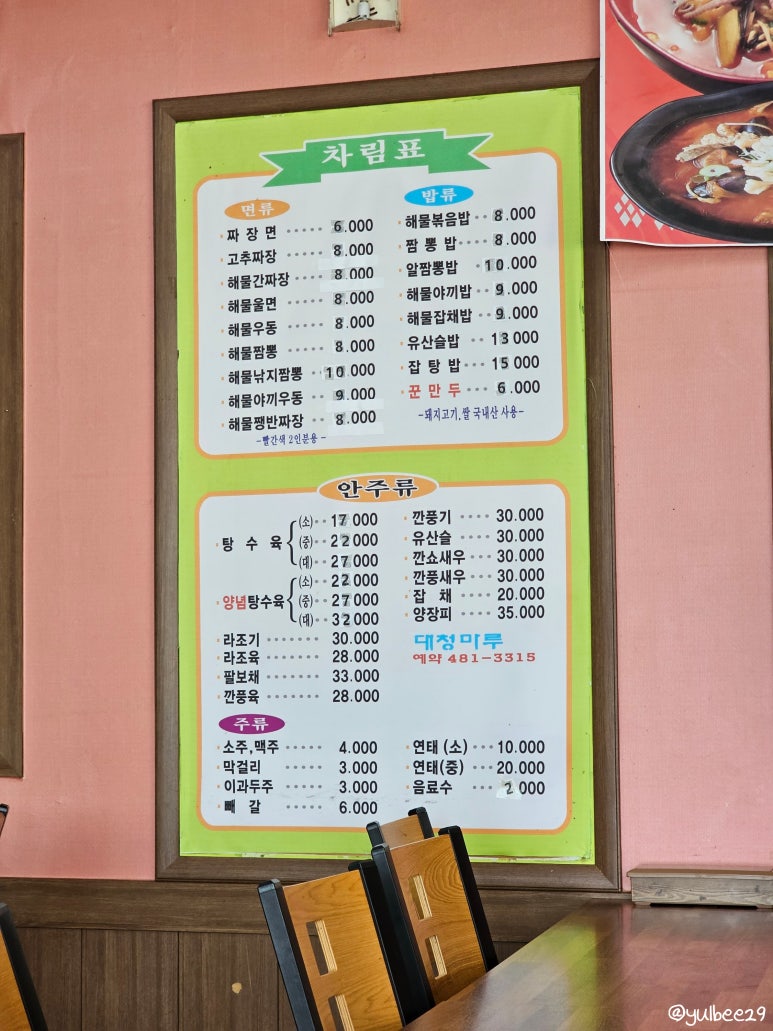 차림표
면류
짜장면 ····· 6.000
고추짜장 ····· 8.000
해물간짜장 ···· 8.000
해물울면 ····· 8.000
해물우동 ····· 8.000
해물짬뽕 ····· 8.000
해물낚지짬뽕 ·· 10.000
해물야끼우동 ·· 9.000
해물쨍반짜장 ·· 8.000
-빨간색 2인분용-
밥류
해물볶음밥 ·· 8.000
짬뽕밥 ···· 8.000
알짬뽕밥 ··· 10.000
해물야끼밥 ·· 9.000
해물잡채밥 ·· 9.000
유산슬밥 ·· 13000
잡탕밥 ··· 15000
꾼만두 ···· 6.000
-돼지고기,쌀 국내산 사용-
안주류
탕수육
(소) ·· 17000
(중) ·· 22000
(대) ·· 27000
양념탕수육
(소) ·· 22000
(중) ·· 27000
(대) ·· 32000
라조기 ······· 30.000
라조육 ······· 28.000
팔보채 ······· 33.000
깐풍육 ······· 28.000
깐풍기 ···· 30.000
유산슬 ···· 30.000
깐쇼새우 ··· 30.000
깐풍새우 ··· 30.000
잡채 ···· 20.000
양장피 ···· 35.000
대청마루
예약 481-3315
주류
소주,맥주 ····· 4.000
막걸리 ····· 3.000
이과두주 ····· 3.000
빼갈 ····· 6.000
연태(소) ··· 10.000
연태(중) ··· 20.000
음료수 ···· 2000
@yulbee29